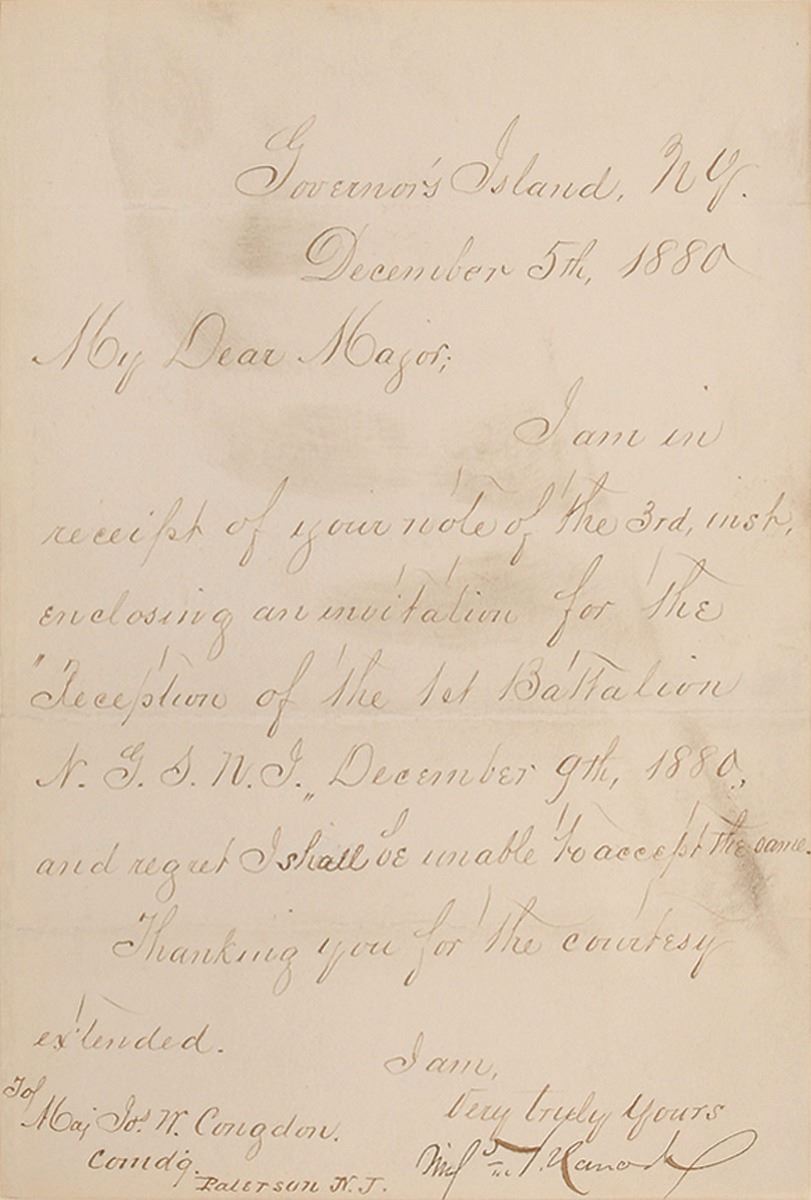 Governor's Island, N Y.
December 5th, 1880
My Dear Major;
I am in
receipt of your note of the 3rd, inst,
enclosing an invitation for the
"Reception of the 1st Battalion
N. G. S. N. J." December 9th, 1880,
and regret I shall be unable to accept the same.
Thanking you for the courtesy
extended.
I am,
Very truly Yours
Winf'd S. Hancock
To/
Maj Jos. W. Congdon.
Comd'g.
Paterson N. J.